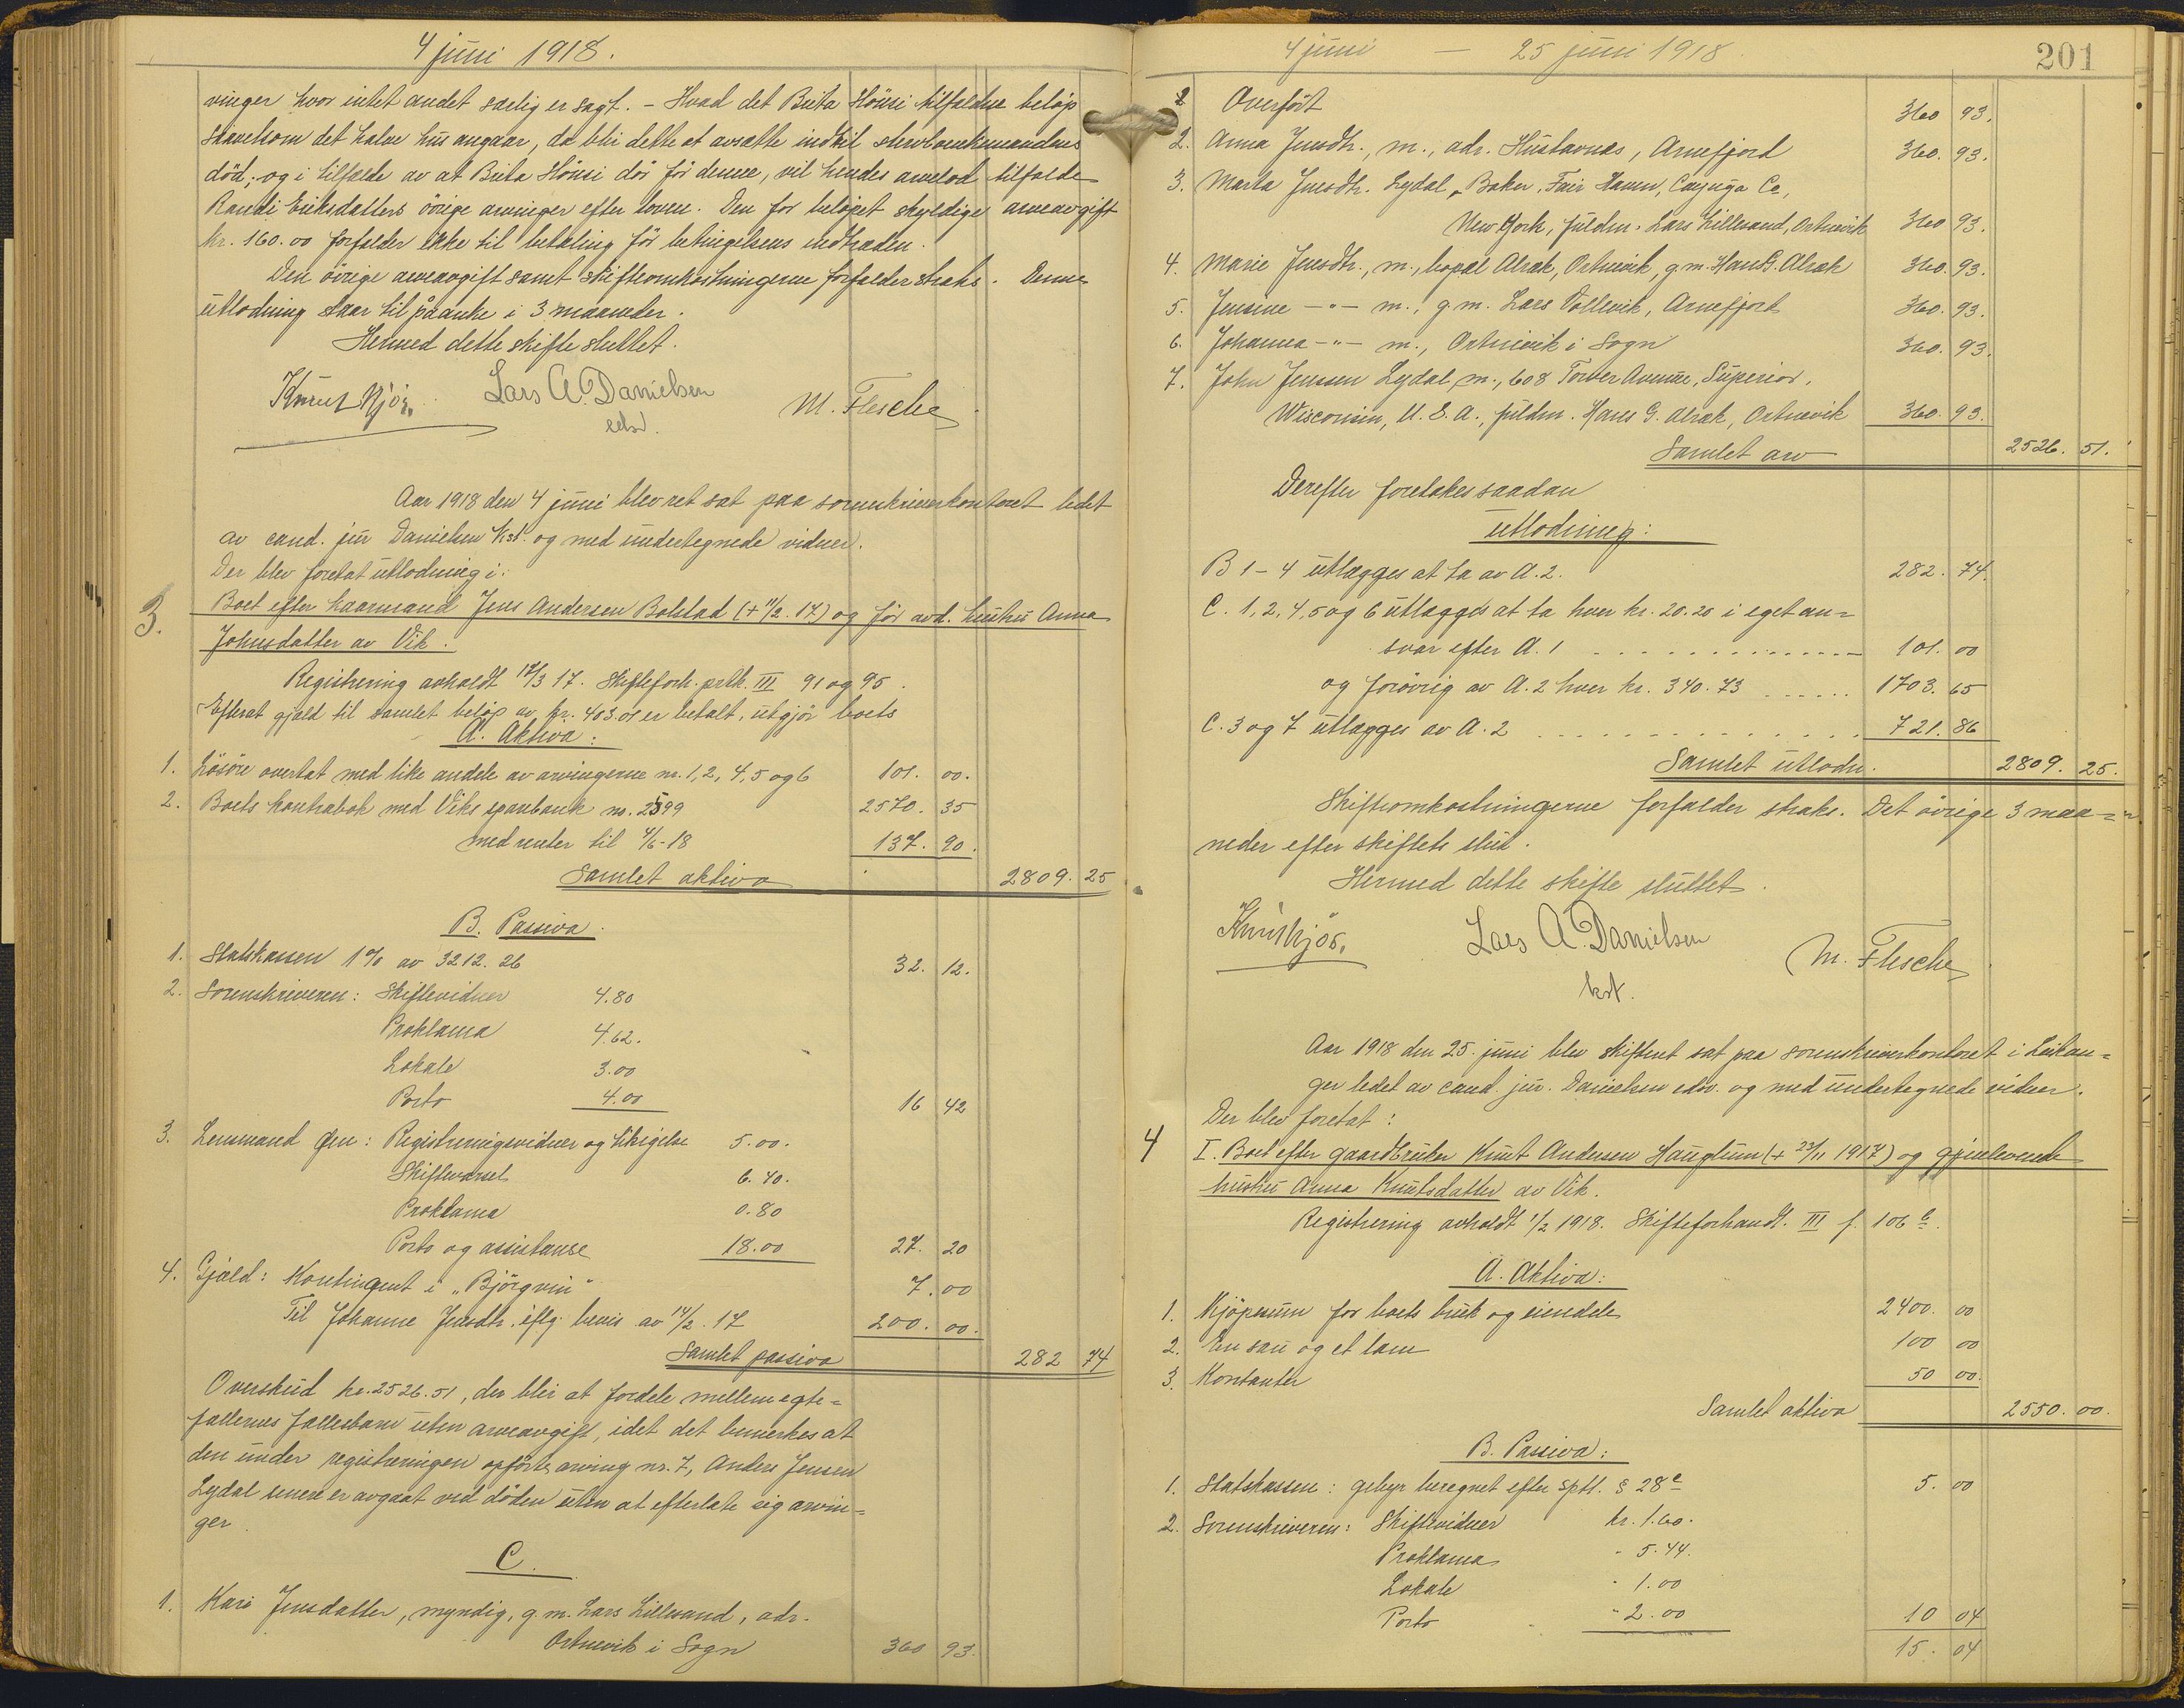 4 juni 1918.
vinger hvor intet andet særlig er sagt. - Hvad det Brita Hönsi tilfaldne beløp
saavelsom det halve hus angaar, da blir dette at avsætte indtil sterbo enkemandens
död; og i tilfælde av at Brita Hönsi dör för denne, vil hendes arvelod tilfalde
Randi Eriksdatters övrige arvinger efter loven. Den for beløpet skyldige arveavgift
kr. 160.00 forfalder ikke til betaling för betingelsens indtræden.
Den övrige arveavgift samt skifteomkostningerne forfalder straks. Denne
utlodning staar til påanke i 3 maaneder.
Hermed dette skifte sluttet.
Knut Njös. Lars A. Danielsen M. Flesche
edsv.
Aar 1918 den 4 juni blev ret sat paa sorenskriverkontoret ledet
av cand. jur Danielsen kst. og med undertegnede vidner.
Der blev foretat utlodning i:
3. Boet efter kaarmand Jens Andersen Bolstad (+ 11/2. 17) og för avd. hustru Anna
Johnsdatter av Vik.
Registrering avholdt 12/3 17. Skifteforh. prtk. III 91 og 95.
Efterat gjæld til samlet beløp av kr. 403.01 er betalt, utgjör boets
A. Aktiva:
1. Lösöre overtat med like andele av arvingerne nr. 1, 2, 4, 5 og 6 101. 00.
2. Boets kontrabok med Viks sparebank no. 2599 2570. 35
med renter til 4/6-18 137. 90.
Samlet aktiva 2809. 25
B. Passiva.
1. Statskassen 1% av 3212. 26 32. 12.
2. Sorenskriveren: Skiftevidner 4.80
Proklama 4.62.
Lokale 3.00
Porto 4.00 16 42
3. Lensmand Øen: Registreringsvidner og tilsigelse 5.00.
Skiftevarsel 6.40.
Proklama 0.80
Porto og assistanse 18.00 27. 20
4. Gjæld: Kontingent i "Björgvin" 7. 00
Til Johanne Jensdtr. iflg. bevis av 14/2. 17 200. 00.
Samlet passiva 282 74
Overskud kr. 2526.51, der blir at fordele mellem egte=
fællernes fællesbarn uten arveavgift, idet det bemerkes at
den under registreringen opförte arving nr. 7, Anders Jensen
Lydal senere er avgaat ved döden uten at efterlate sig arvin=
ger.
C.
1. Kari Jensdatter, myndig, g. m. Lars Lillesand, adr.
Ortnevik i Sogn 360 93.
4 juni — 25 juni 1918.
201
Overfört 360 93.
2. Anna Jensdtr., m., adr. Hustavnæs, Arnefjord 360. 93.
3. Marta Jensdtr. Lydal, Baker, Fair Haven, Cayuga Co,
New York, fuldm. Lars Lillesand, Ortnevik 360 93.
4. Marie Jensdtr., m., bopæl Alræk, Ortnevik, g. m. Hans G. Alræk 360. 93.
5. Jensine -"- m., g. m. Lars Vollevik, Arnefjord 360. 93.
6. Johanna -"- m., Ortnevik i Sogn 360. 93.
7. John Jenssen Lydal, m., 608 Tower Avenue, Superior,
Wisconsin, U. S. A., fuldm. Hans G. Alræk, Ortnevik 360. 93.
Samlet arv 2526. 51.
Derefter foretokes saadan
Utlodning:
B 1 - 4 utlægges at ta av A. 2. 282. 74.
C. 1, 2, 4, 5 og 6 utlægges at ta hver kr. 20.20 i eget an=
svar efter A. 1 101. 00
og forövrig av A. 2 hver kr. 340.73 1703. 65
C. 3 og 7 utlægges av A. 2 721. 86
Samlet utlodn. 2809. 25.
Skifteomkostningerne forfalder straks. Det övrige 3 maa=
neder efter skiftets slut.
Hermed dette skifte sluttet.
Knut Njös. Lars A. Danielsen M. Flesche
kst.
Aar 1918 den 25. juni blev skifteret sat paa sorenskriverkontoret i Leikan=
ger ledet av cand. jur. Danielsen edsv. og med undertegnede vidner.
Der blev foretat:
4 I. Boet efter gaardbruker Knut Andersen Hauglum (+ 23/11 1917) og gjenlevende
hustru Anna Knutsdatter av Vik.
Registrering avholdt 1/2 1918. Skifteforhandl. III f. 106 b.
A. Aktiva:
1. Kjöpesum for boets bruk og eiendele 2400. 00
2. En sau og et lam 100 00
3. Kontanter 50 00.
Samlet aktiva 2550. 00.
B. Passiva:
1. Statskassen: gebyr beregnet efter sptl. § 28 c 5. 00
2. Sorenskriveren: Skiftevidner kr. 1.60.
Proklama " 5.44.
Lokale " 1.00
Porto " 2.00 10 04
15. 04